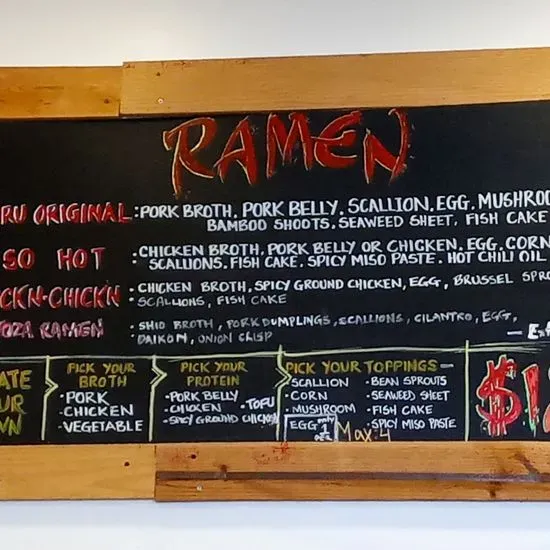 RAMEN
RU ORIGINAL : PORK BROTH, PORK BELLY, SCALLION, EGG, MUSHROO
BAMBOO SHOOTS, SEAWEED SHEET, FISH CAKE
SO HOT : CHICKEN BROTH, PORK BELLY OR CHICKEN, EGG, CORN
SCALLIONS, FISH CAKE, SPICY MISO PASTE, HOT CHILI OIL
CKN-CHICK'N : CHICKEN BROTH, SPICY GROUND CHICKEN, EGG, BRUSSEL SPRO
SCALLIONS, FISH CAKE
YOZA RAMEN : SHIO BROTH, PORK DUMPLINGS, SCALLIONS, CILANTRO, EGG,
DAIKON, ONION CRISP
ATE
UR
WN
PICK YOUR
BROTH
• PORK
• CHICKEN
• VEGETABLE
PICK YOUR
PROTEIN
• PORK BELLY
• CHICKEN • TOFU
• SPICY GROUND CHICKEN
PICK YOUR TOPPINGS
• SCALLION • BEAN SPROUTS
• CORN • SEAWEED SHEET
• MUSHROOM • FISH CAKE
EGG only 1 • SPICY MISO PASTE
Max: 4
$1